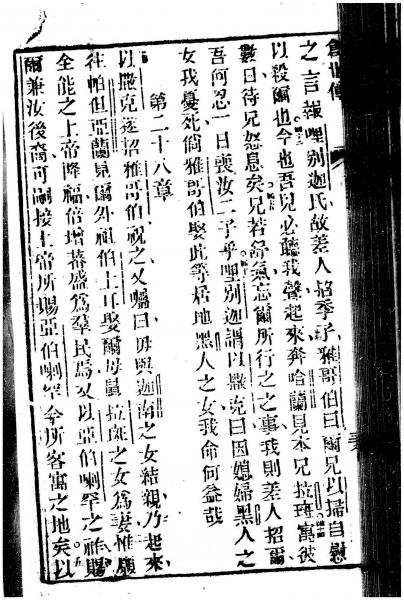 創世傳
之言報哩別迦氏故差人招季子雅哥伯曰爾兄以掃自慰
以殺爾也今也吾兒必聽我聲起來奔哈蘭見本兄拉班寓彼
數日待兄怒息矣兄若舒氣忘爾所行之之事我則差人招爾
吾何忍一日喪汝二子乎哩別迦謂以撒克曰因媳婦黑人之
女我憂死倘雅哥伯娶此等居地黑人之女我命何益哉
第二十八章
以撒克遂招雅哥伯祝之又囑曰毋與迦南之女結親乃起來
往帕但亞蘭見爾外祖伯土耳娶爾母舅拉班之女為妻惟願
全能之上帝降福倍增蕃盛為羣民焉又以亞伯喇罕之祚賜
爾兼汝後裔可嗣接上帝所賜亞伯喇罕今所客寓之地矣以